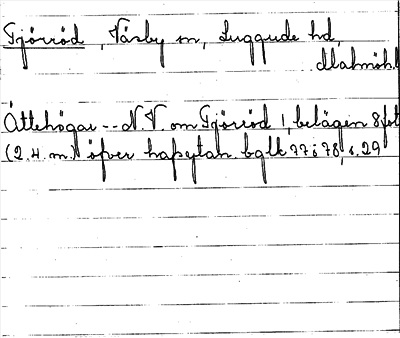 Tjörröd, Väsby sn, Luggude hd,
Malmöh.l
Ättehögar -- N.V. om Tjörröd 1, belägen 8 fot
(2.4. m.) öfver hafsytan. bglk 77 o 78, s. 29